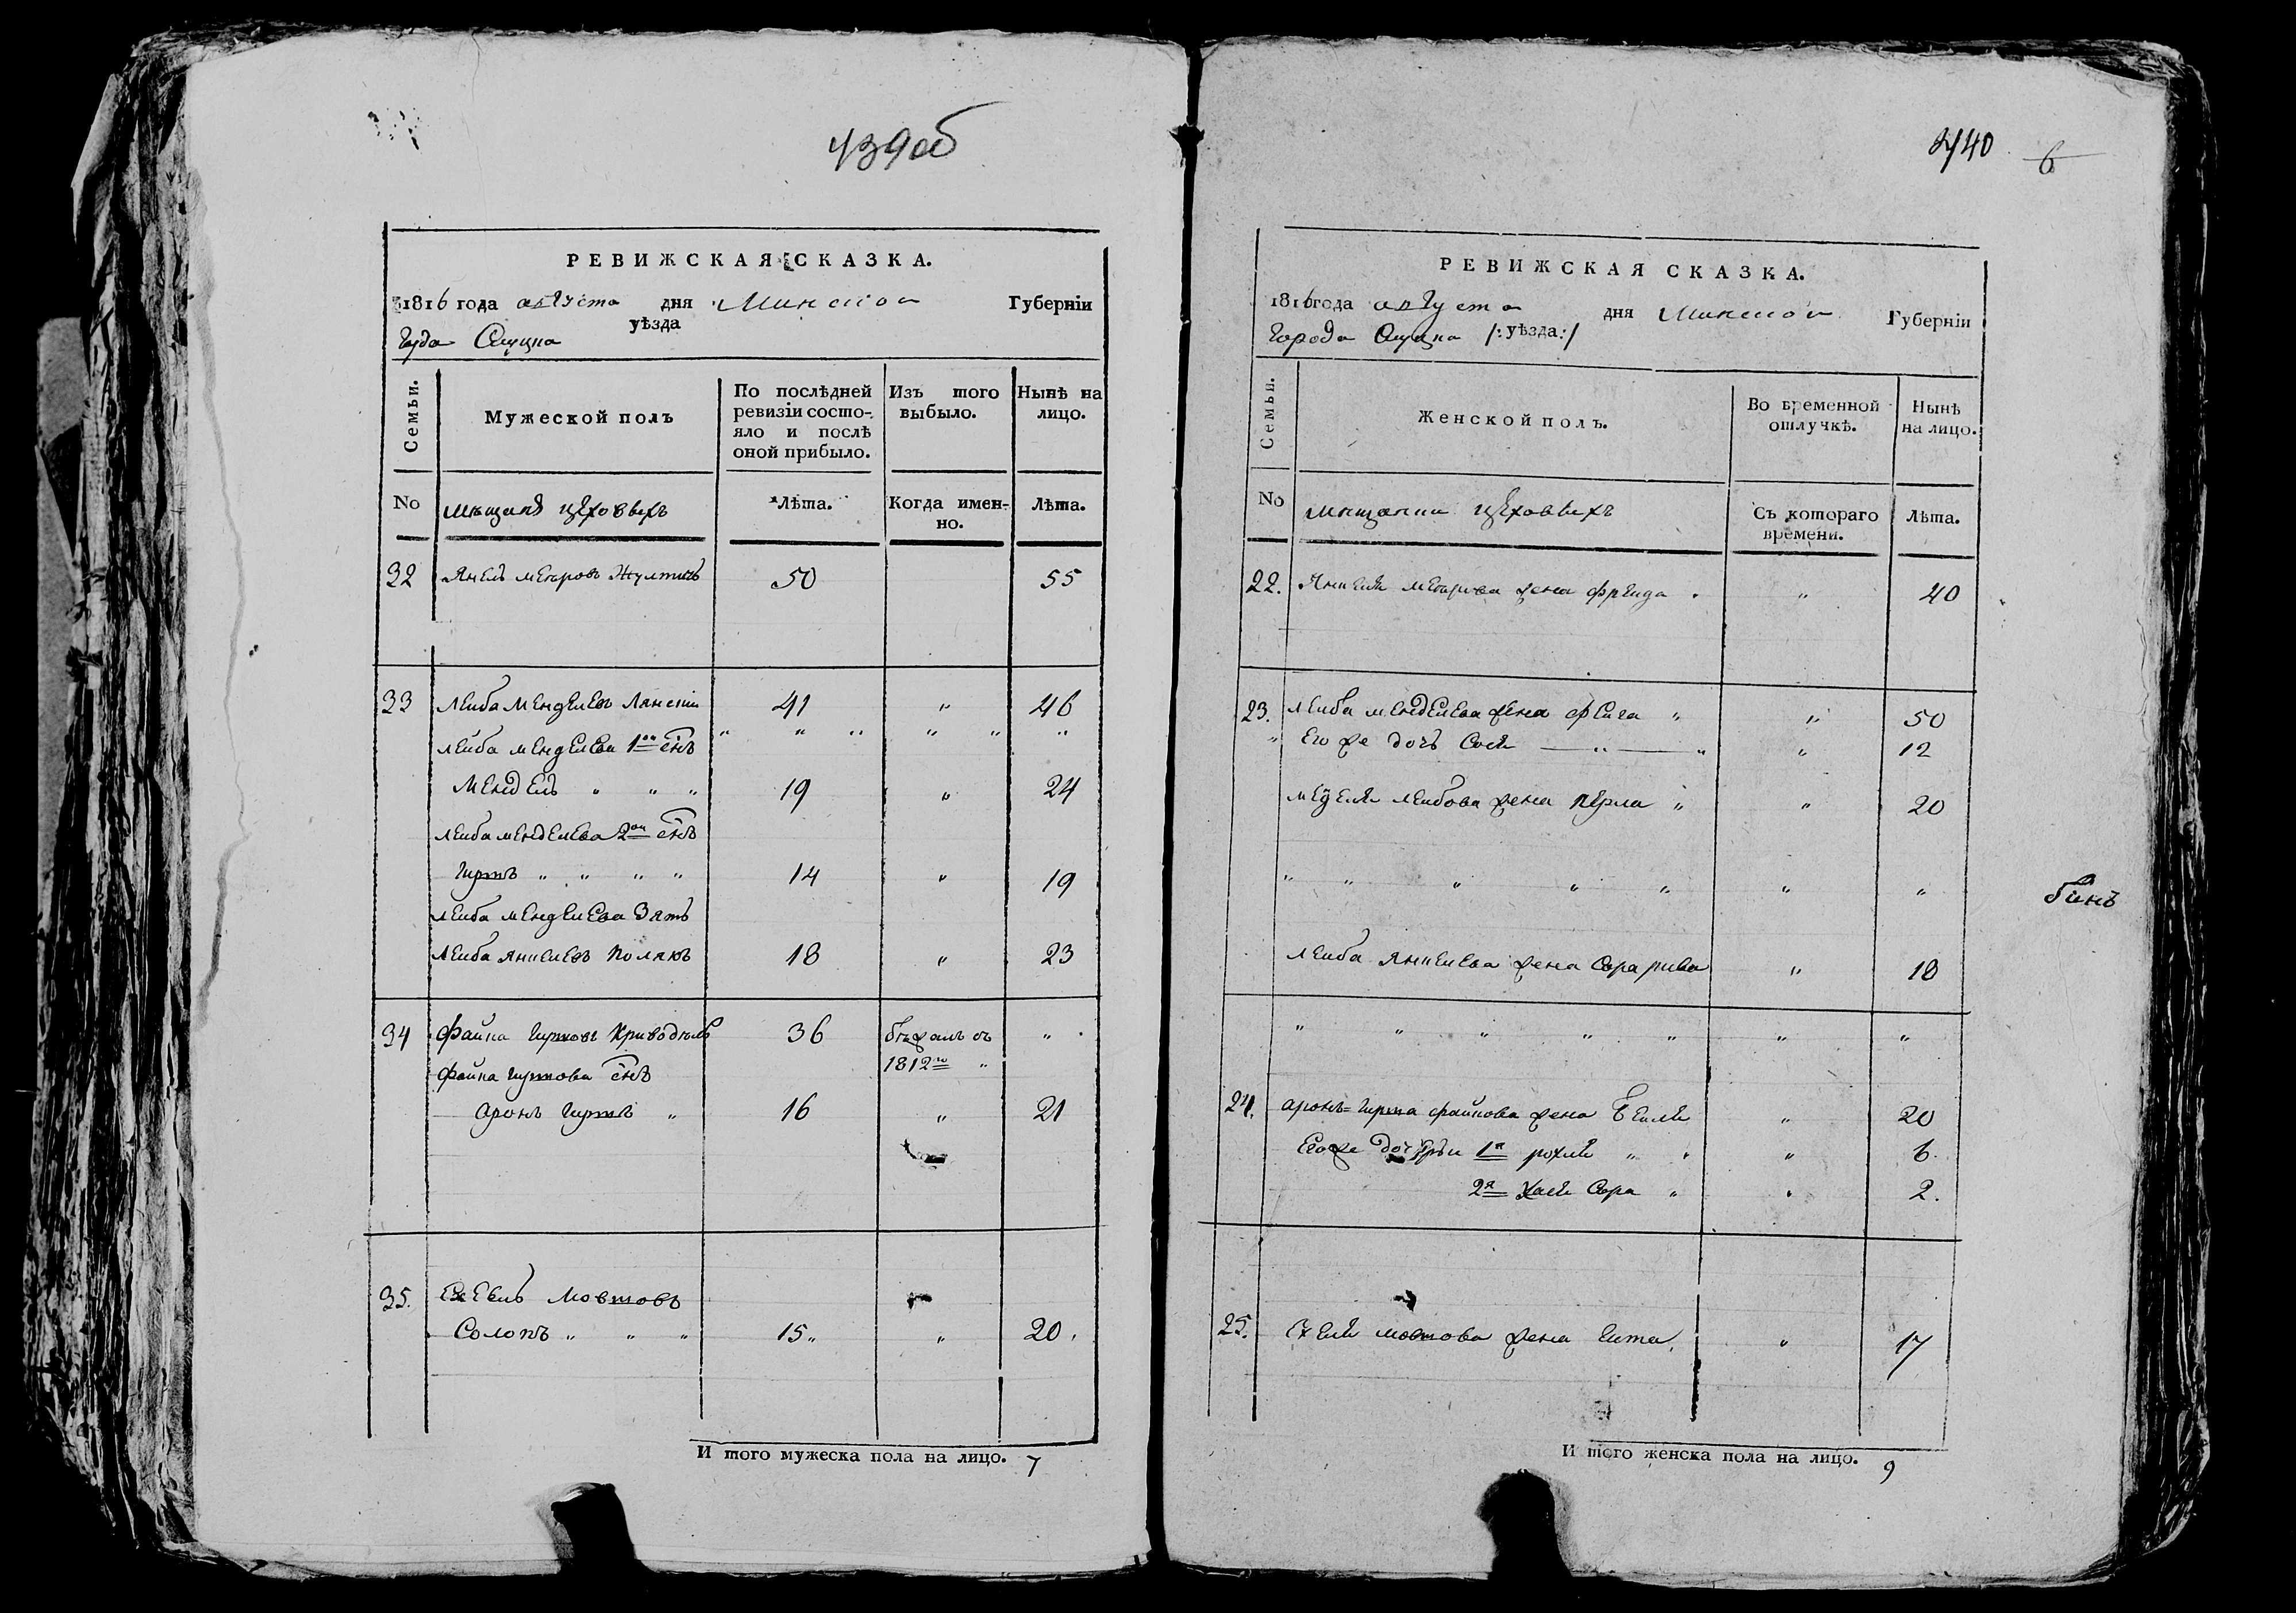 439об
РЕВИЖСКАЯ СКАЗКА.
1816 года августа дня Минской Губерніи
уѣзда
Слуцка
Семьи.
Мужеской полъ
По послѣдней ревизіи состо-
яло и послѣ
оной прибыло.
Изъ того выбыло.
Нынѣ на лицо.
No
мѣщанъ цеховыхъ
Лѣта.
Когда имен-
но.
Лѣта.
22 50 55
23 Леиба Менделевъ 41 " 46
леиба менделева 1ои снъ " " " " " "
Мендель " " " 19 " 24
леиба менделева 2ои снъ
Гиршъ " " " " 14 " 19
леиба менделева Зять
Леиба Янкелевъ Полякъ 18 " 23
24 Файна Гиршовъ 36 бѣжалъ въ "
файна гиршова снъ 1812го "
аронъ гиршъ " 16 " 21
25.
Солопъ " " " 15 " " 20.
И того мужеска пола на лицо. 7
440 6
РЕВИЖСКАЯ СКАЗКА.
1816 года августа дня Минской Губерніи
Города Слуцка /:уѣзда:/
Семьи.
Женской полъ.
Во временной отлучкѣ.
Нынѣ на лицо.
No
мѣщанки цеховыхъ
Съ котораго времени.
Лѣта.
22. жена Фрейда " 40
23. леиба менделева жена феига " " 50
" Его же дочъ Сося " " " 12
леибова жена перла " " 20
" " " " " " "
леиба янкелева жена Сора рива " 18
" " " " " " "
24. аронъ=гирша файнова жена Беиля " 20
Егоже дочери 1я рохля " " " 6.
2я Хася Сора " " 2.
25. мовшова жена Гита " 17
И того женска пола на лицо. 9